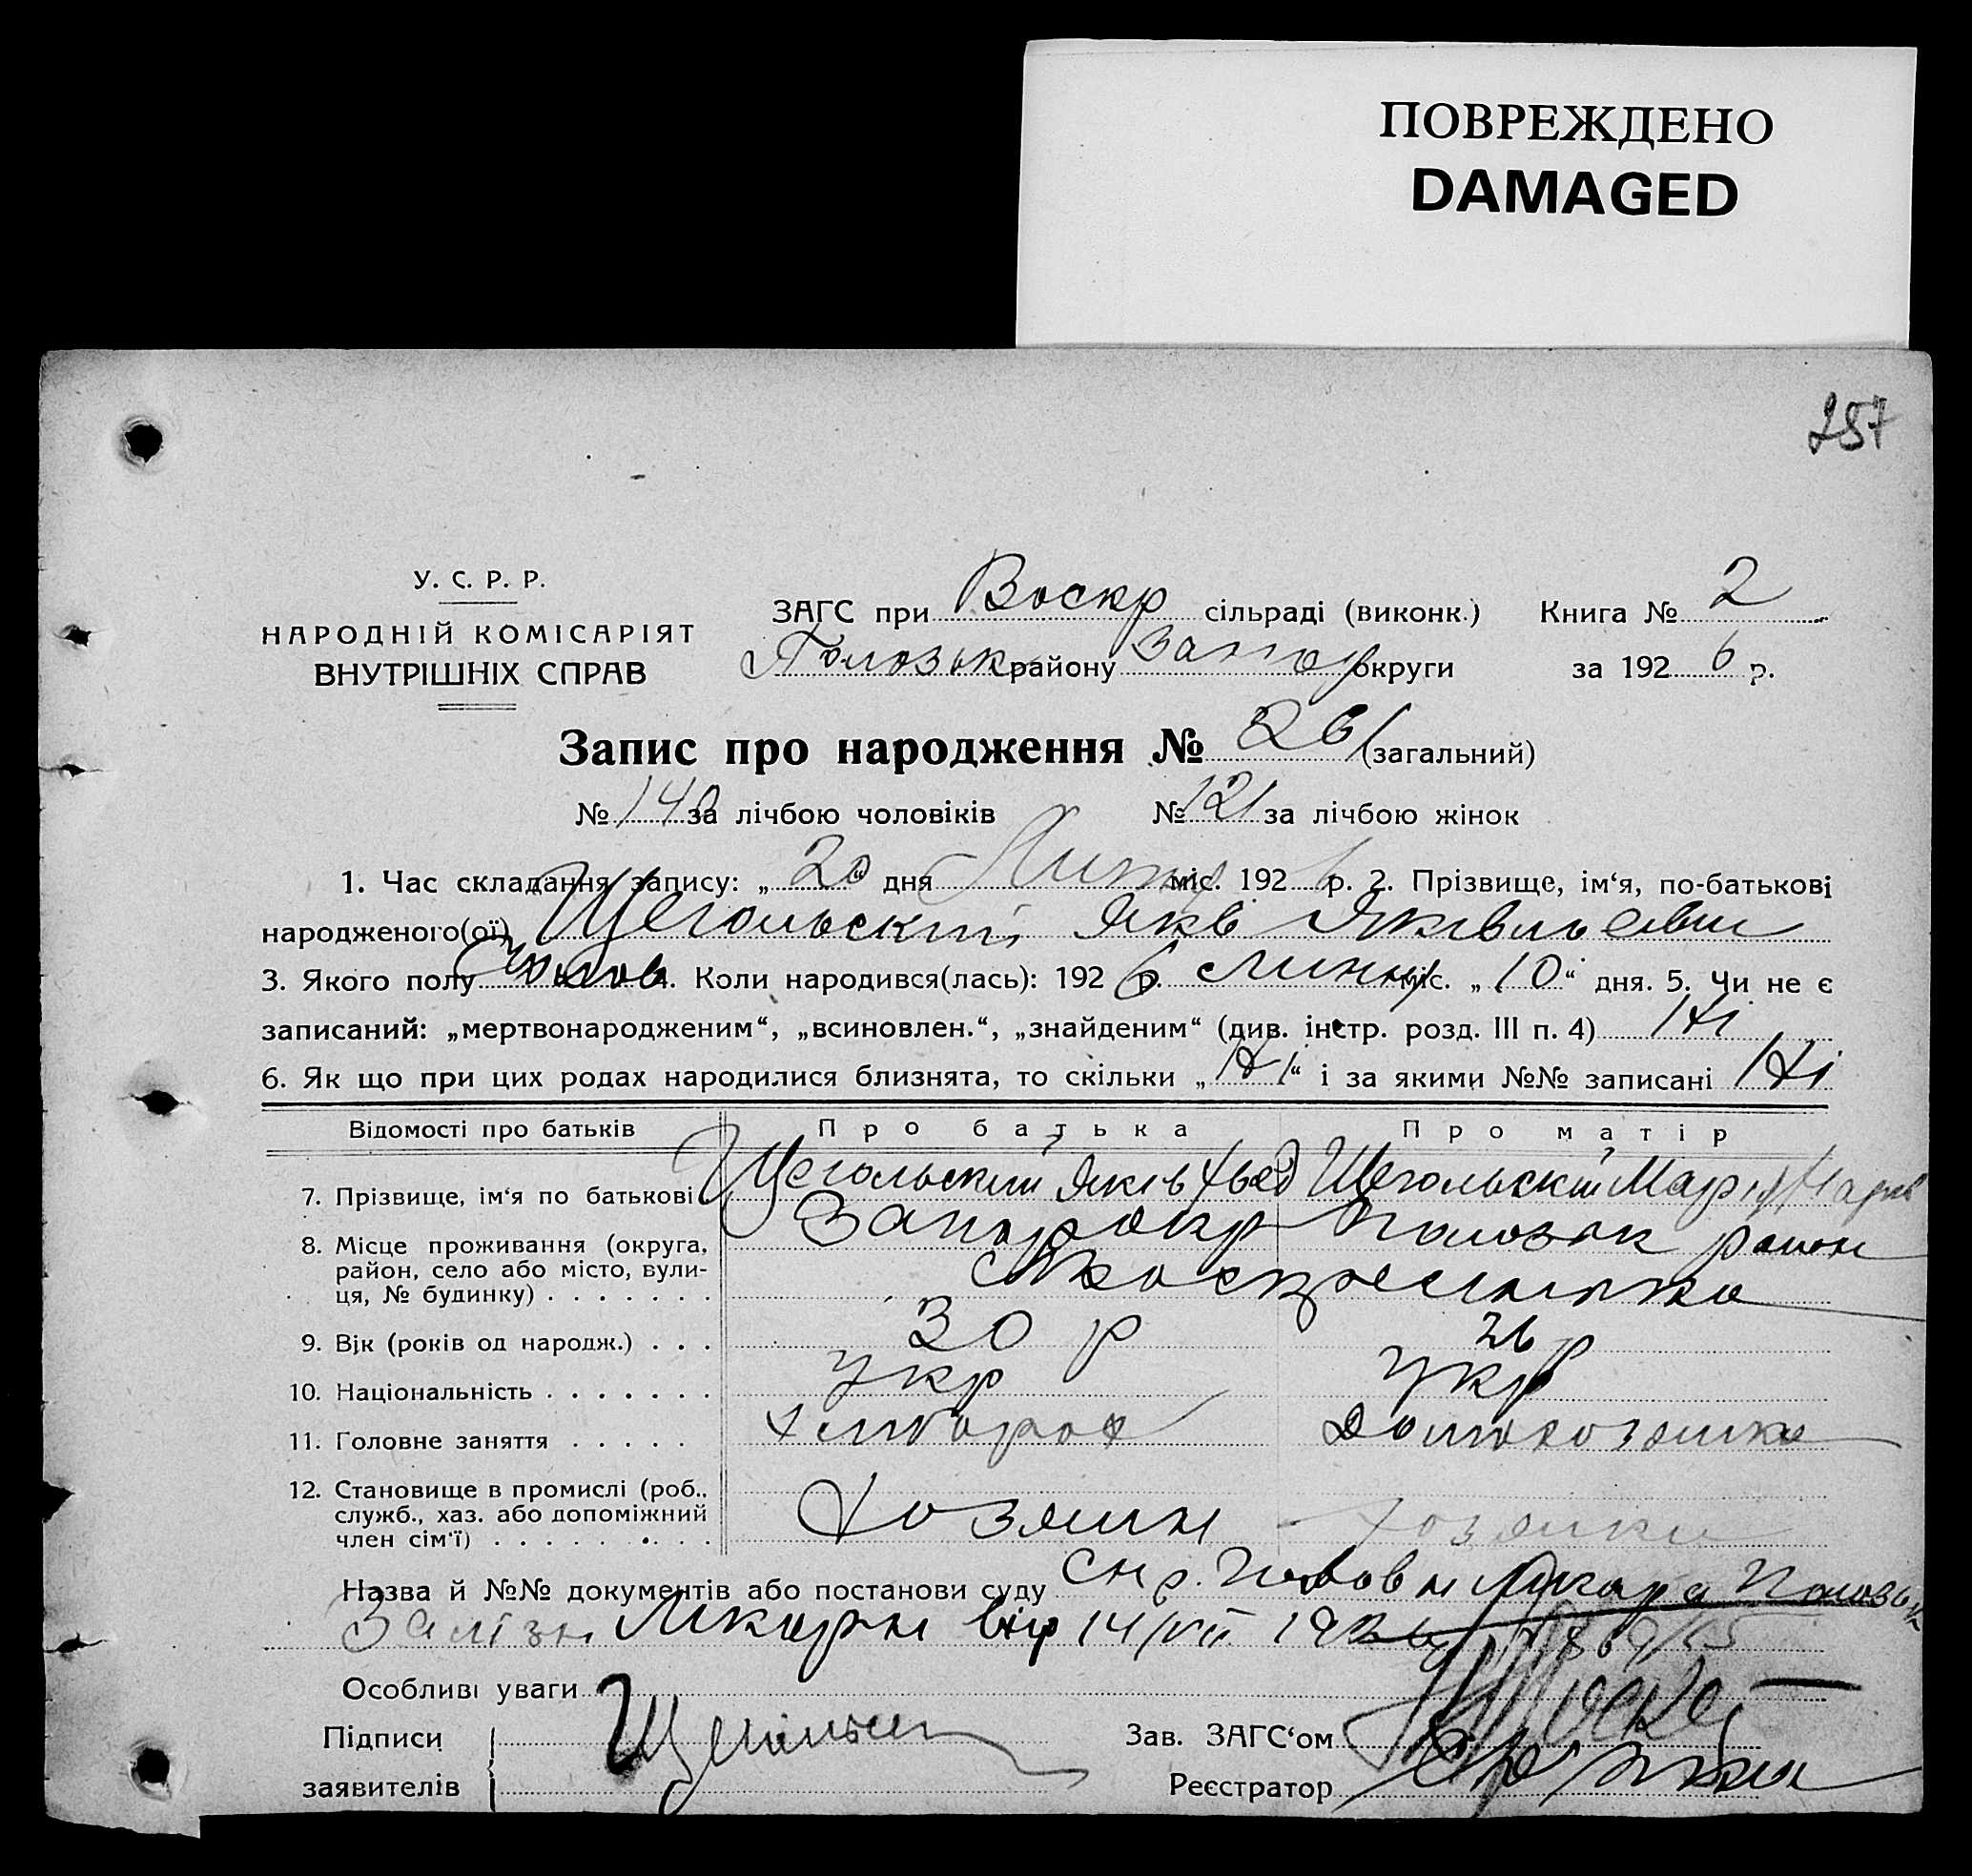 ПОВРЕЖДЕНО
DAMAGED
257
У. С. Р. Р.
НАРОДНІЙ КОМІСАРІЯТ
ВНУТРІШНІХ СПРАВ
ЗАГС при Воскр сільраді (виконк.) Книга № 2
Пологськ району Запор округи за 192 6 р.
Запис про народження № 261 (загальний)
№ 140 за лічбою чоловіків № 121 за лічбою жінок
1. Час складання запису: „ 20 “ дня міс. 192 6 р. 2. Прізвище, ім‘я, по-батькові
народженого(ої) Щегольский Яків Яківльевич
3. Якого полу Чолов 4. Коли народився(лась): 192 6 р. міс. „ 10 “ дня. 5. Чи не є
записаний: „мертвонародженим“, „всиновлен.“, „знайденим“ (див. інстр. розд. III п. 4) Ні
6. Як що при цих родах народилися близнята, то скільки „ Ні “ і за якими №№ записані Ні
Відомості про батьків Про батька Про матір
7. Прізвище, ім‘я по батькові Щегольский Яків Хвед Щегольский Марія
8. Місце проживання (округа, Запор окр район
район, село або місто, вули-
ця, № будинку) . . . . . . .
9. Вік (років од народж.) . . . 30 р 26 р
10. Національність . . . . . . . Укр Укр
11. Головне заняття . . . . . Хлібороб Домохозяйка
12. Становище в промислі (роб.,
служб., хаз. або допоміжний Хозяин хозяйка
член сім‘ї) . . . . . . . . .
Назва й №№ документів або постанови суду
від 14/VII 1926
Особливі уваги
Підписи Зав. ЗАГС‘ом
заявителів Реєстратор